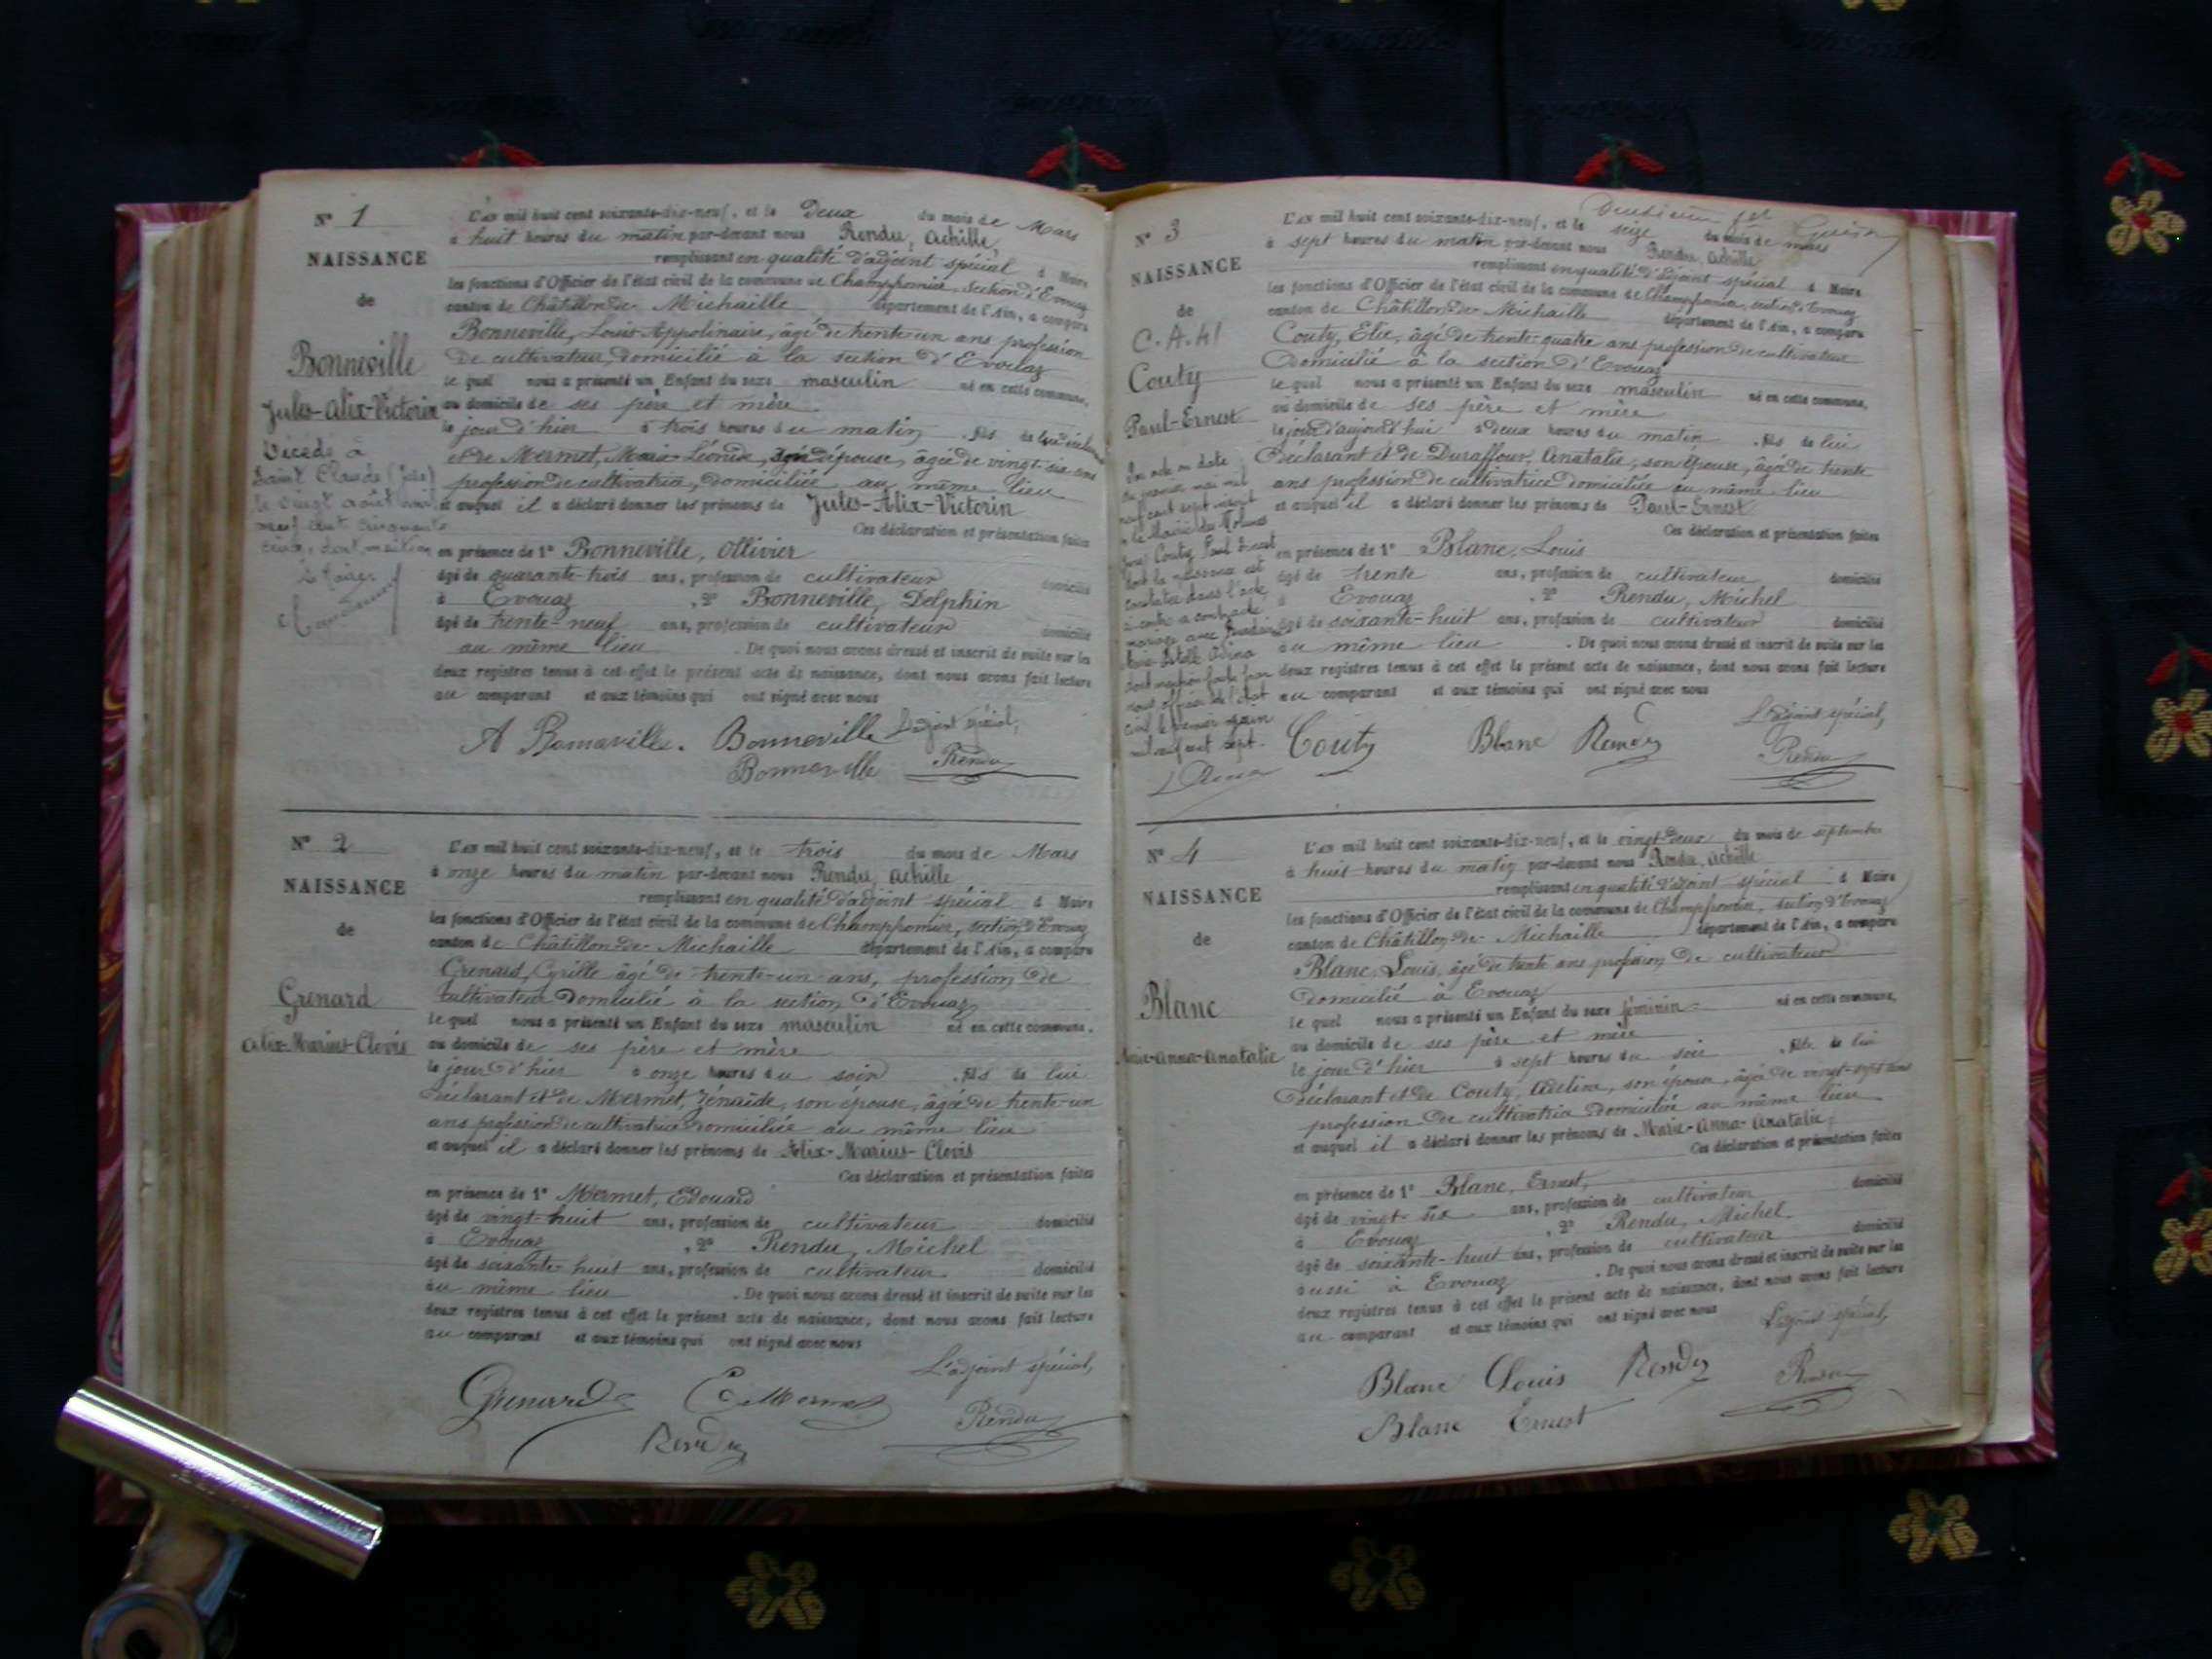 N° 1
NAISSANCE
de
Bonneville
Jules-Alix-Victorin
Décédé à
Saint Claude (Jura)
le vingt août mil
neuf cent cinquante
dont mention
L'an mil huit cent soixante-dix-neuf, et le Deux du mois de Mars
à huit heures du matin par-devant nous Rendu, Achille,
remplissant en qualité d'adjoint spécial d Maire
les fonctions d'Officier de l'état civil de la commune de Champfromier, section d'Evouaz
canton de Châtillon-de-Michaille département de l'Ain, a comparu
Bonneville, Louis-Appolinaire, âgé de trente-un ans profession
de cultivateur, domicilié à la section d'Evouaz
lequel nous a présenté un Enfant du sexe masculin né en cette commune,
au domicile de ses père et mère
le jour d'hier à trois heures du matin, fils de lui déclarant
et de Mermet, Marie Léonide, son épouse, âgée de vingt-six ans
profession de cultivatrice, domiciliée au même lieu
et auquel il a déclaré donner les prénoms de Jules-Alix-Victorin
Ces déclaration et présentation faites
en présence de 1° Bonneville, Ollivier
âgé de quarante-trois ans, profession de cultivateur domicilié
à Evouaz, 2° Bonneville, Delphin
âgé de trente-neuf ans, profession de cultivateur domicilié
au même lieu. De quoi nous avons dressé et inscrit de suite sur les
deux registres tenus à cet effet le présent acte de naissance, dont nous avons fait lecture
au comparant et aux témoins qui ont signé avec nous
A Bonneville. Bonneville L'adjoint spécial,
Bonneville Rendu
N° 2
NAISSANCE
de
Grenard
Alix-Marius-Clovis
L'an mil huit cent soixante-dix-neuf, et le trois du mois de Mars
à onze heures du matin par-devant nous Rendu, Achille
remplissant en qualité d'adjoint spécial d Maire
les fonctions d'Officier de l'état civil de la commune de Champfromier, section d'Evouaz
canton de Châtillon-de-Michaille département de l'Ain, a comparu
Grenard, Cyrille âgé de trente-un ans, profession de
cultivateur domicilié à la section d'Evouaz
lequel nous a présenté un Enfant du sexe masculin né en cette commune,
au domicile de ses père et mère
le jour d'hier à onze heures du soir, fils de lui
déclarant et de Mermet, Zénaïde, son épouse, âgée de trente-un
ans profession de cultivatrice domiciliée au même lieu
et auquel il a déclaré donner les prénoms de Alix-Marius-Clovis
Ces déclaration et présentation faites
en présence de 1° Mermet, Edouard
âgé de vingt-huit ans, profession de cultivateur domicilié
à Evouaz, 2° Rendu, Michel
âgé de soixante-huit ans, profession de cultivateur domicilié
au même lieu. De quoi nous avons dressé et inscrit de suite sur les
deux registres tenus à cet effet le présent acte de naissance, dont nous avons fait lecture
au comparant et aux témoins qui ont signé avec nous
L'adjoint spécial,
Grenard E. Mermet Rendu
Rendu
N° 3
NAISSANCE
de
C.A.41
Couty
Paul-Ernest
Par acte en date
du premier mai mil
neuf cent sept
à la Mairie des Molunes
Couty Paul Ernest
dont la naissance est
constatée dans l'acte
ci-contre a contracté
mariage avec
Marie-Estelle
dont mention faite par
nous officier de l'état
civil le premier juin
mil neuf cent sept.
L'an mil huit cent soixante-dix-neuf, et le seize du mois de mars
à sept heures du matin par-devant nous Rendu, Achille
remplissant en qualité d'adjoint spécial d Maire
les fonctions d'Officier de l'état civil de la commune de Champfromier, section d'Evouaz
canton de Châtillon-de-Michaille département de l'Ain, a comparu
Couty, Elie, âgé de trente-quatre ans profession de cultivateur
domicilié à la section d'Evouaz
lequel nous a présenté un Enfant du sexe masculin né en cette commune,
au domicile de ses père et mère
le jour d'aujourd'hui à deux heures du matin, fils de lui
déclarant et de Duraffour, Anatalie, son épouse, âgée de trente
ans profession de cultivatrice domiciliée au même lieu
et auquel il a déclaré donner les prénoms de Paul-Ernest
Ces déclaration et présentation faites
en présence de 1° Blanc, Louis
âgé de trente ans, profession de cultivateur domicilié
à Evouaz, 2° Rendu, Michel
âgé de soixante-huit ans, profession de cultivateur domicilié
au même lieu. De quoi nous avons dressé et inscrit de suite sur les
deux registres tenus à cet effet le présent acte de naissance, dont nous avons fait lecture
au comparant et aux témoins qui ont signé avec nous
L'adjoint spécial,
Couty Blanc Rendu Rendu
N° 4
NAISSANCE
de
Blanc
Marie-Anna-Anatalie
L'an mil huit cent soixante-dix-neuf, et le vingt-deux du mois de septembre
à huit heures du matin par-devant nous Rendu, Achille
remplissant en qualité d'adjoint spécial d Maire
les fonctions d'Officier de l'état civil de la commune de Champfromier, section d'Evouaz
canton de Châtillon-de-Michaille département de l'Ain, a comparu
Blanc, Louis, âgé de trente ans profession de cultivateur
domicilié à Evouaz
lequel nous a présenté un Enfant du sexe féminin né en cette commune,
au domicile de ses père et mère
le jour d'hier à sept heures du soir, fille de lui
déclarant et de Couty, Adeline, son épouse, âgée de vingt-sept ans
profession de cultivatrice domiciliée au même lieu
et auquel il a déclaré donner les prénoms de Marie-Anna-Anatalie
Ces déclaration et présentation faites
en présence de 1° Blanc, Ernest,
âgé de vingt-six ans, profession de cultivateur domicilié
à Evouaz, 2° Rendu, Michel
âgé de soixante-huit ans, profession de cultivateur domicilié
aussi à Evouaz. De quoi nous avons dressé et inscrit de suite sur les
deux registres tenus à cet effet le présent acte de naissance, dont nous avons fait lecture
au comparant et aux témoins qui ont signé avec nous
L'adjoint spécial,
Blanc Louis Rendu Rendu
Blanc Ernest